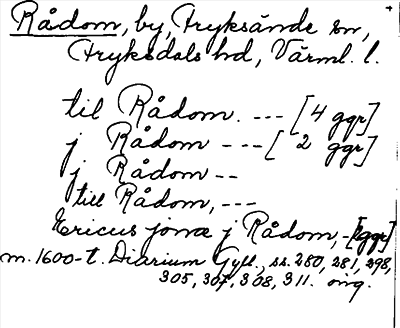 Rådom, by, Fryksände sn,
Fryksdals hd, Värml. l.
til Rådom. --- [4 ggr]
j Rådom --- [2 ggr]
j Rådom --
till Rådom, ---
Ericus jonæ j Rådom, - [2ggr]
m. 1600-t. Diarium Gyll., ss. 280, 281, 298,
305, 307, 308, 311. orig.